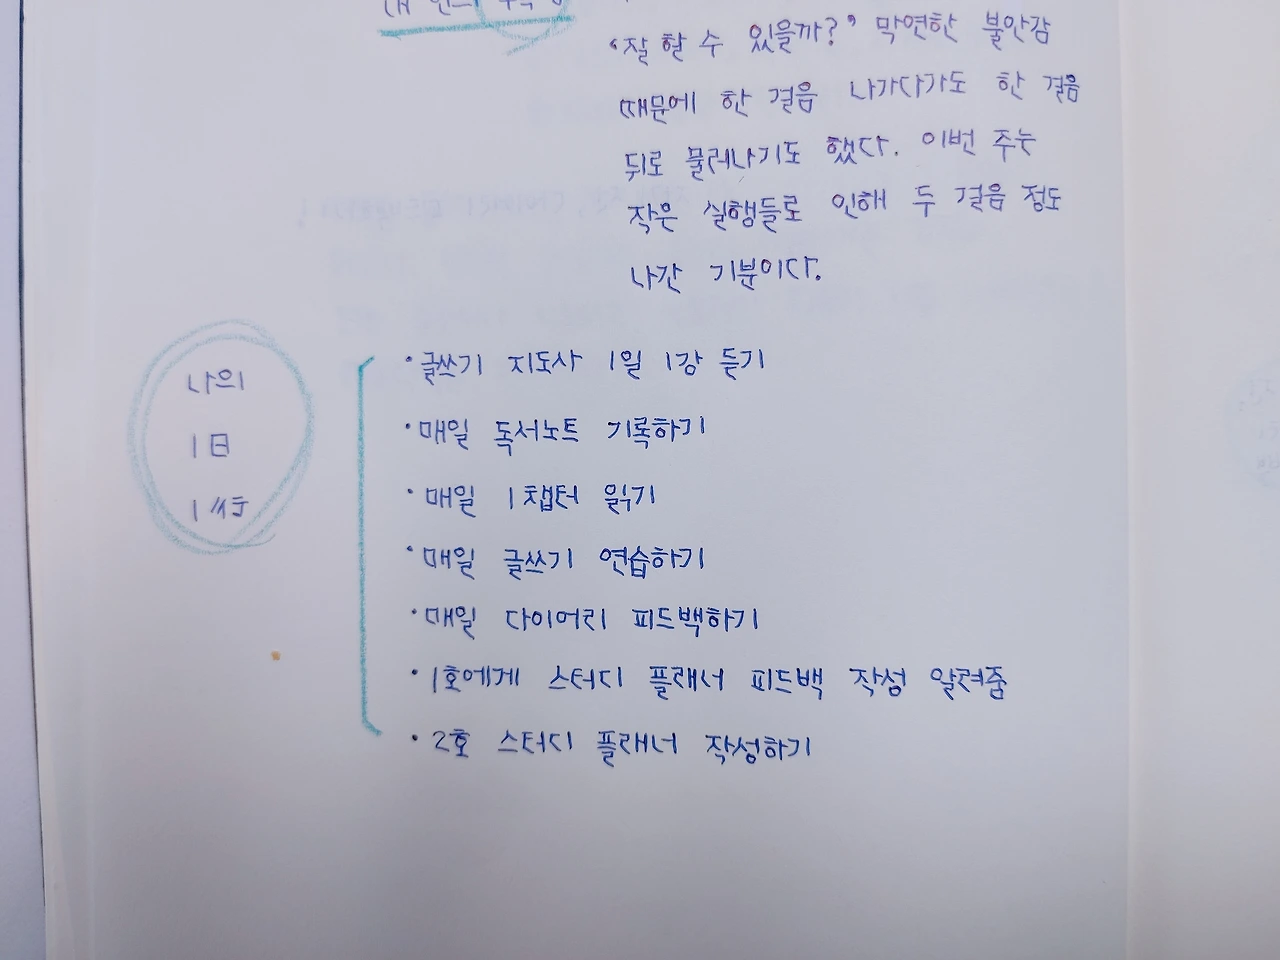 ‘잘 할 수 있을까?’ 막연한 불안감
때문에 한 걸음 나가다가도 한 걸음
뒤로 물러나기도 했다. 이번 주는
작은 실행들로 인해 두 걸음 정도
나간 기분이다.
나의
1日
1쓰
• 글쓰기 지도사 1일 1강 듣기
• 매일 독서노트 기록하기
• 매일 1챕터 읽기
• 매일 글쓰기 연습하기
• 매일 다이어리 피드백하기
• 1호에게 스터디 플래너 피드백 작성 알려줌
• 2호 스터디 플래너 작성하기